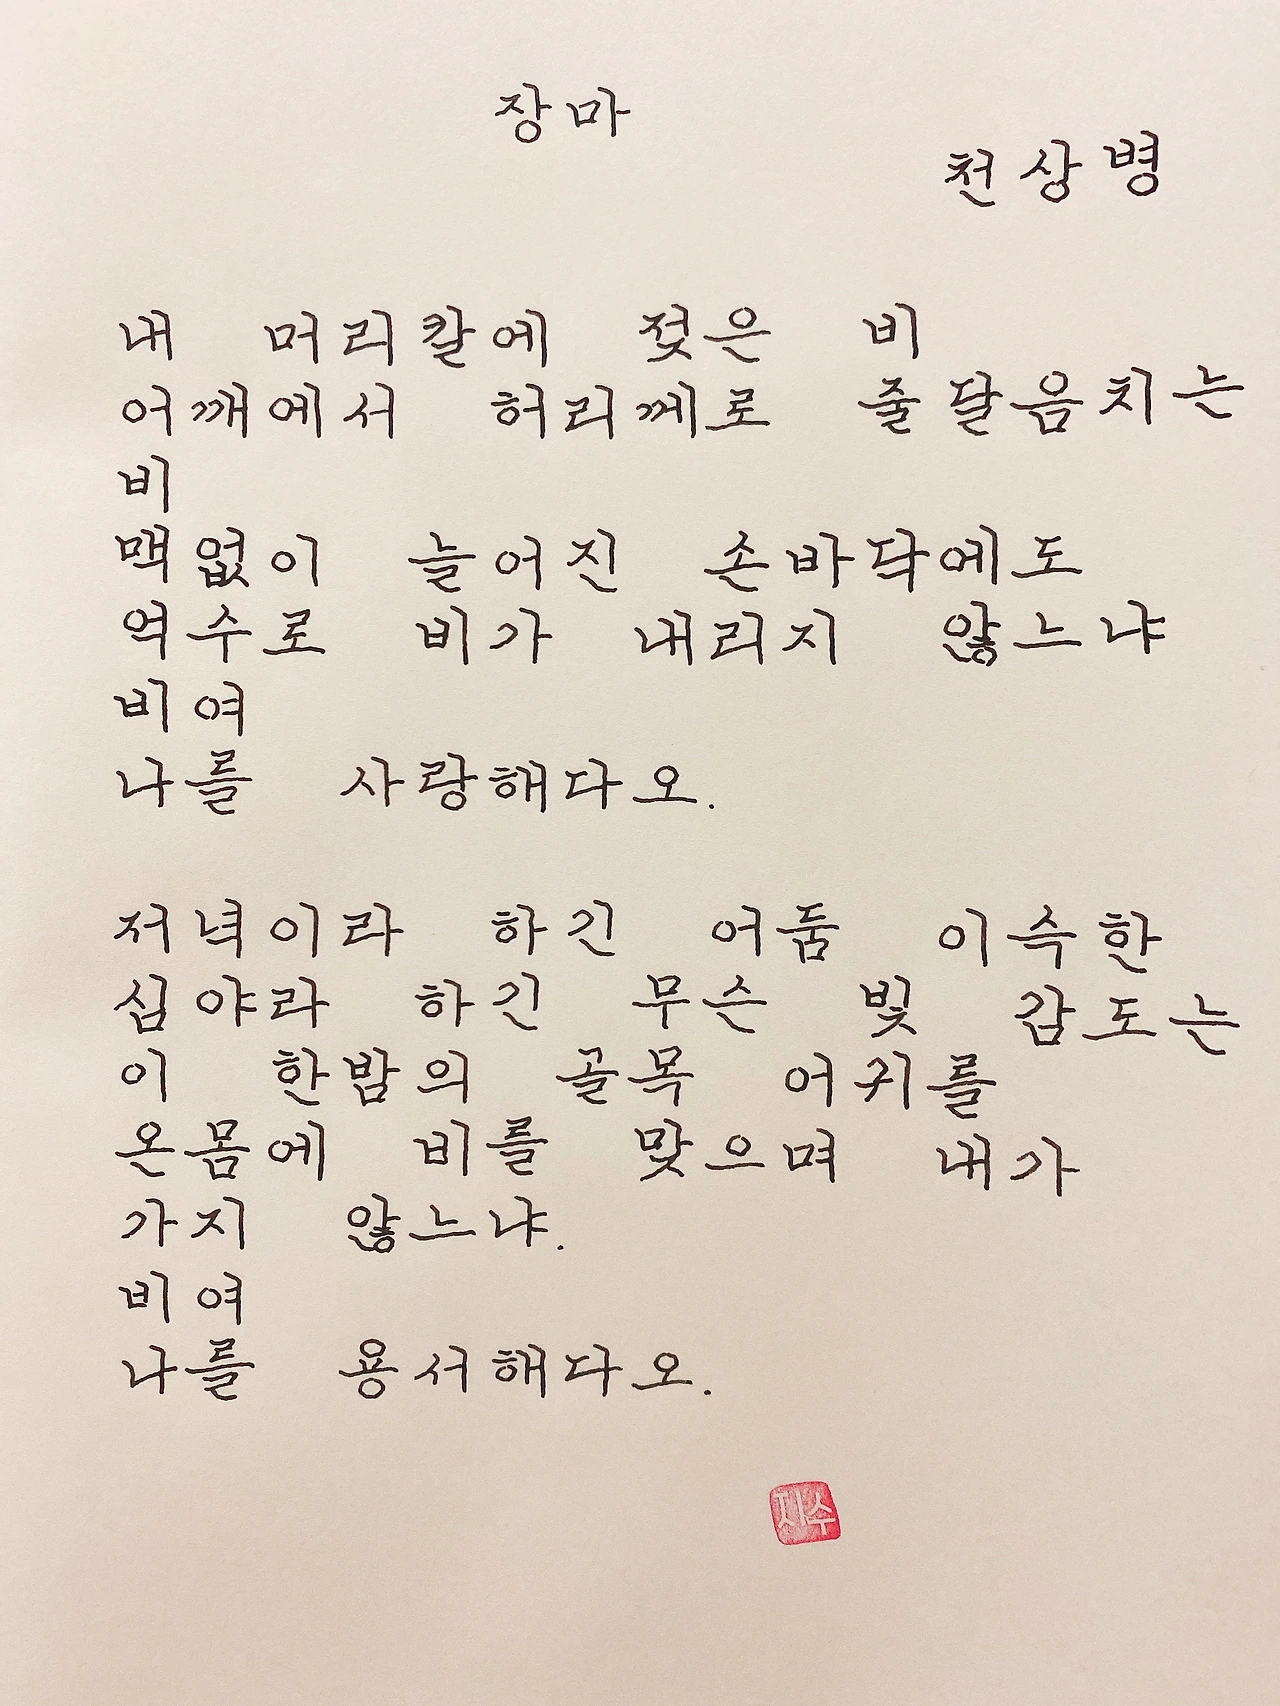 장마
천상병
내 머리칼에 젖은 비
어깨에서 허리께로 줄달음치는
비
맥없이 늘어진 손바닥에도
억수로 비가 내리지 않느냐
비여
나를 사랑해다오.
저녁이라 하긴 어둠 이슥한
심야라 하긴 무슨 빛 감도는
이 한밤의 골목 어귀를
온몸에 비를 맞으며 내가
가지 않느냐.
비여
나를 용서해다오.
지수